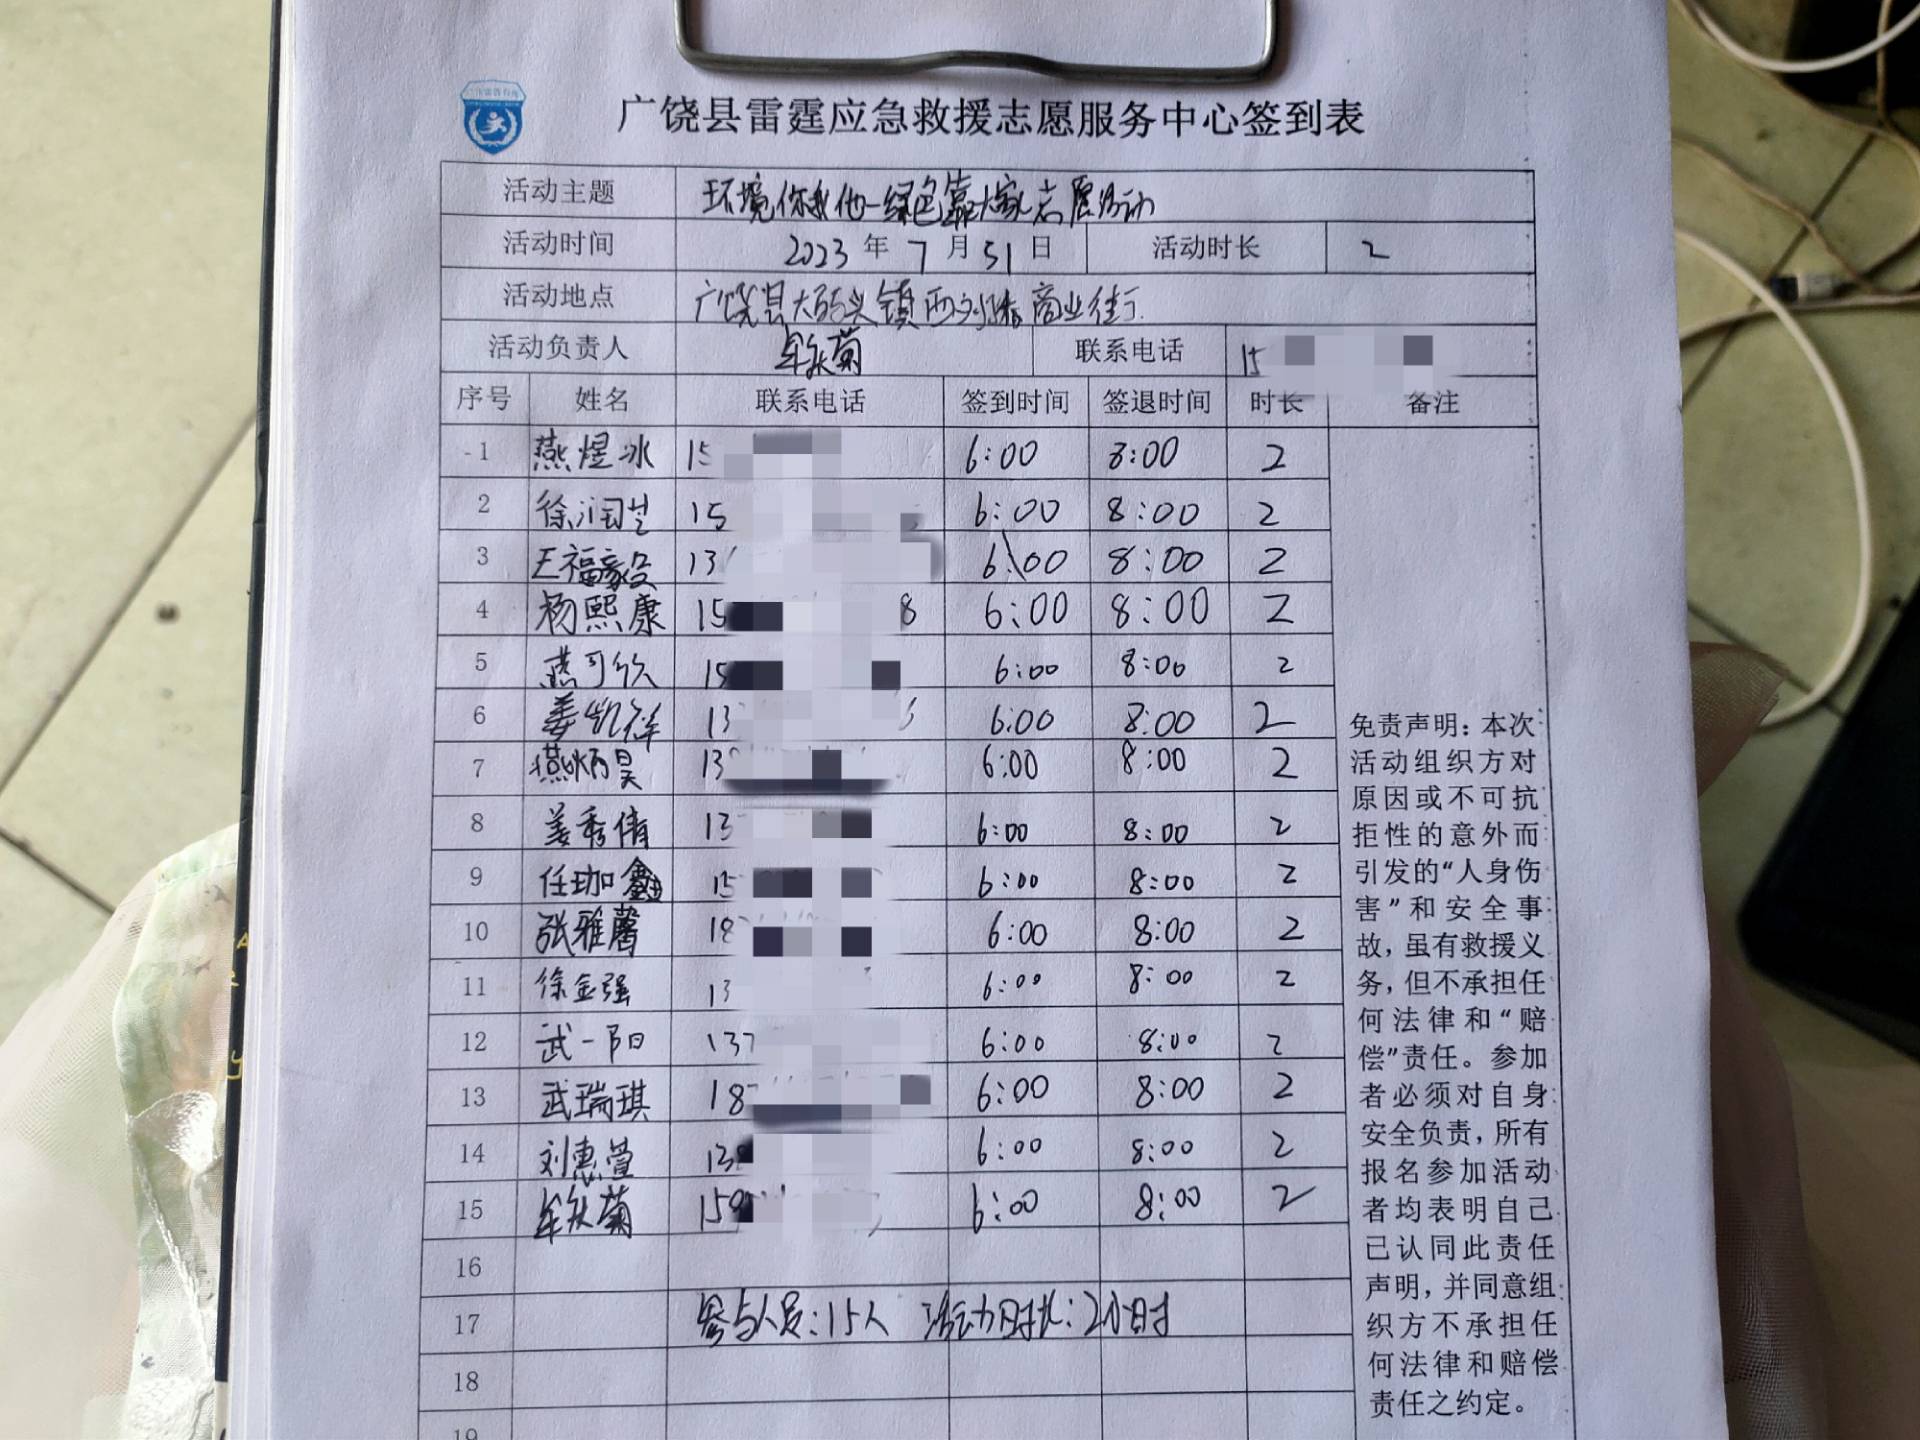 广饶县雷霆应急救援志愿服务中心签到表
活动主题 环境你我他一绿色靠大家志愿活动
活动时间 2023 年 7 月 31 日 活动时长 2
活动地点 广饶县大码头镇西刘桥商业街
活动负责人 牟庆菊 联系电话 15
序号 姓名 联系电话 签到时间 签退时间 时长 备注
1 燕煜冰 15 6:00 8:00 2
2 徐润芝 15 6:00 8:00 2
3 王福毅 13 6:00 8:00 2
4 杨熙康 15 8 6:00 8:00 2
5 燕可欣 15 6:00 8:00 2
6 姜凯祥 13 6:00 8:00 2
7 燕炳昊 13 6:00 8:00 2
8 姜秀倩 13 6:00 8:00 2
9 任珈鑫 15 6:00 8:00 2
10 张雅馨 18 6:00 8:00 2
11 徐金强 13 6:00 8:00 2
12 武一阳 137 6:00 8:00 2
13 武瑞琪 18 6:00 8:00 2
14 刘惠萱 13 6:00 8:00 2
15 牟庆菊 159 6:00 8:00 2
16
17 参与人员:15人 活动时长:2小时
18
19
免责声明：本次
活动组织方对
原因或不可抗
拒性的意外而
引发的“人身伤
害”和安全事
故，虽有救援义
务，但不承担任
何法律和“赔
偿”责任。参加
者必须对自身
安全负责，所有
报名参加活动
者均表明自己
已认同此责任
声明，并同意组
织方不承担任
何法律和赔偿
责任之约定。